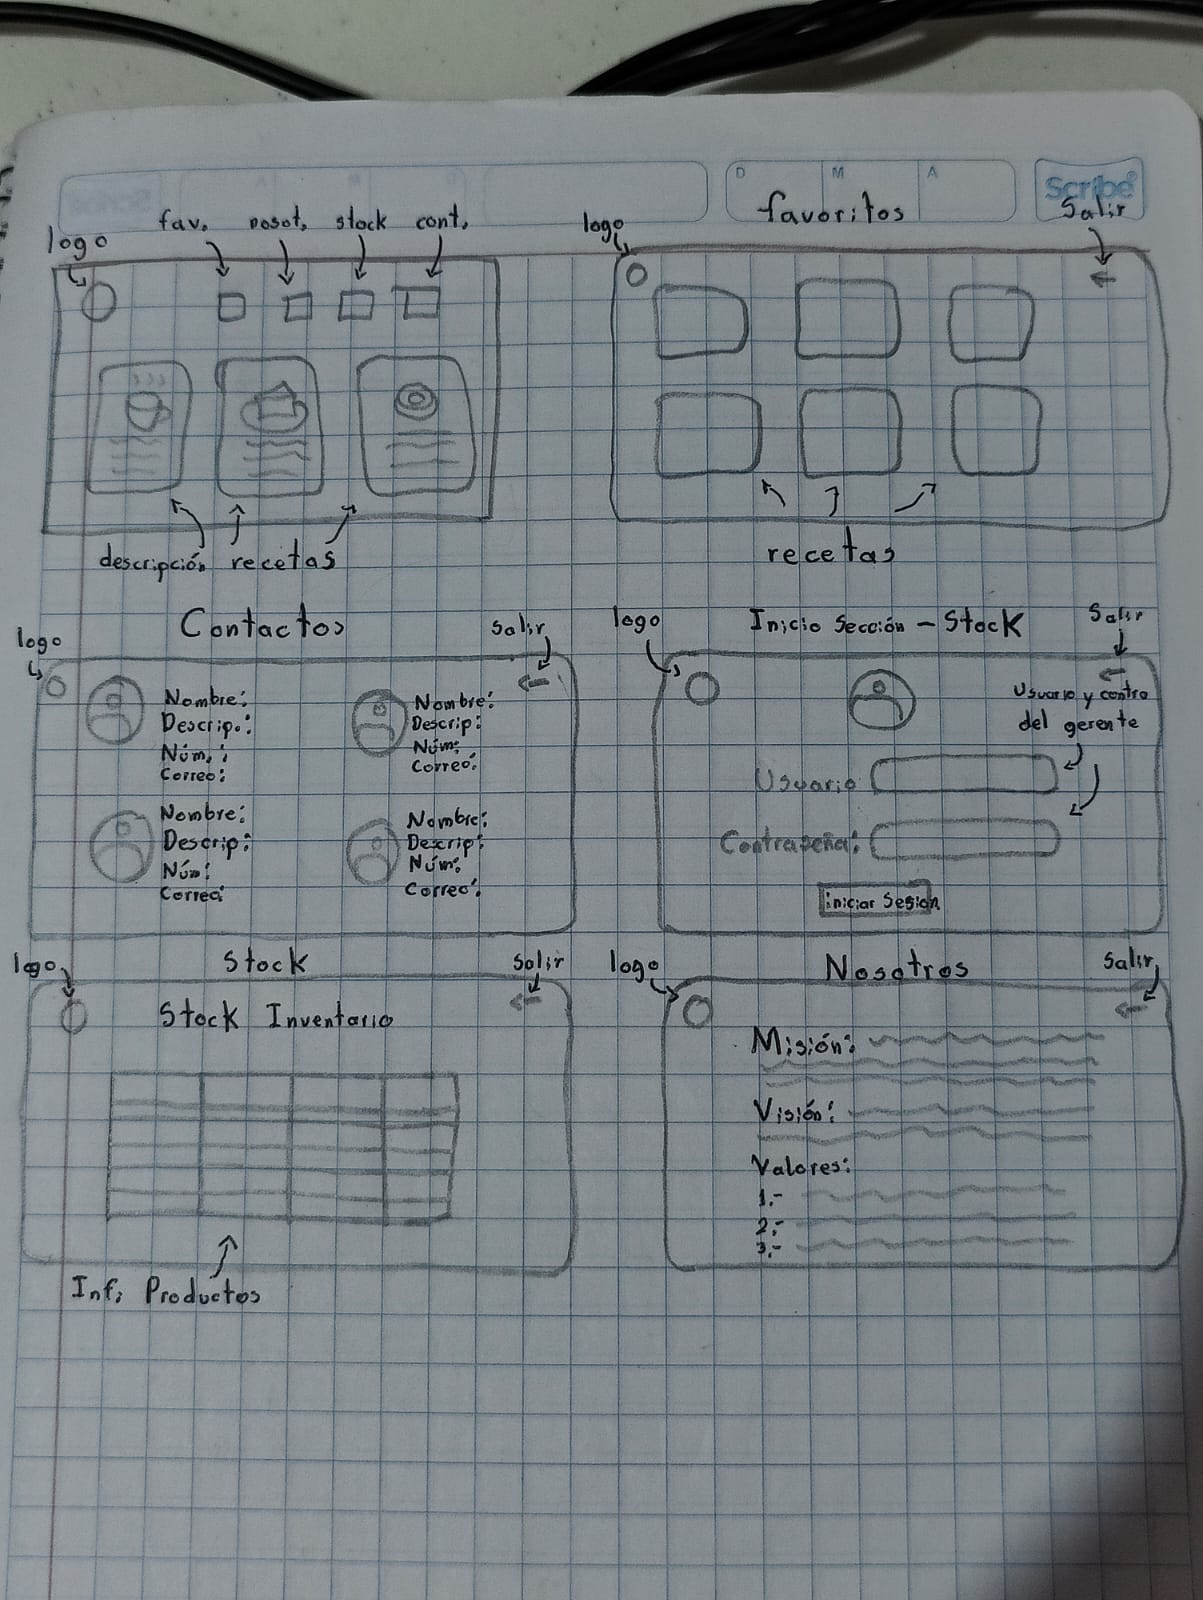 D M A
Scribe
logo
fav. nosot. stock cont.
descripción recetas
favoritos
logo
Salir
recetas
Contactos
logo
Salir
Nombre:
Descrip.:
Núm.:
Correo:
Nombre:
Descrip:
Núm:
Correo:
Nombre:
Descrip:
Núm:
Correo:
Nombre:
Descrip:
Núm:
Correo:
Inicio Sección - Stock
logo
Salir
Usuario y contra
del gerente
Usuario
Contraseña:
iniciar Sesión
Stock
logo
Salir
Stock Inventario
Inf. Productos
Nosotros
logo
Salir
Misión:
Visión:
Valores:
1.-
2.-
3.-